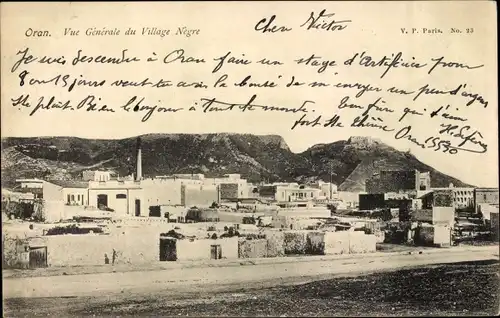 Oran. Vue Générale du Village Nègre
V. P. Paris. No. 23
Cher Victor
Je suis descendu à Oran faire un stage d'Artifice pour
15 jours veux tu avoir la bonté de m'envoyer un peu d'aide
S'te plait Bien le bonjour à Tout le monde
Ton frère qui t'aime
fort Ste Thérèse Oran